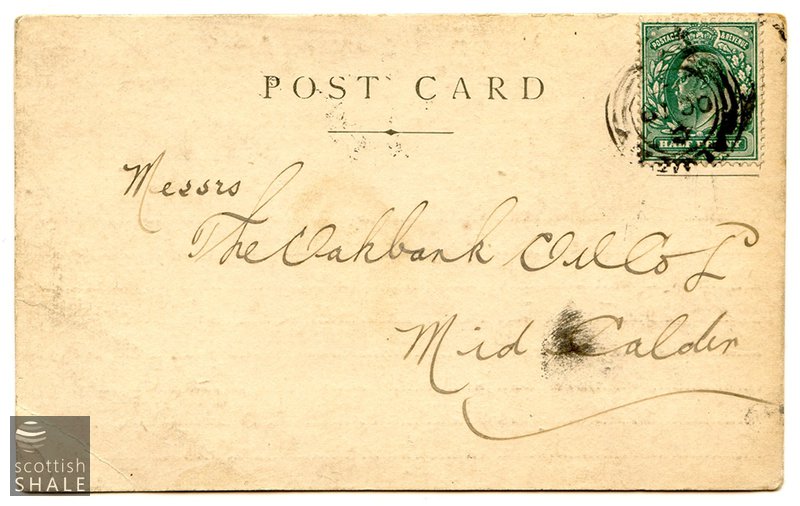 POSTAGE & REVENUE
POST CARD
HALF PENNY
Messrs
The Oakbank Oil Co L
Mid Calder
scottish
SHALE